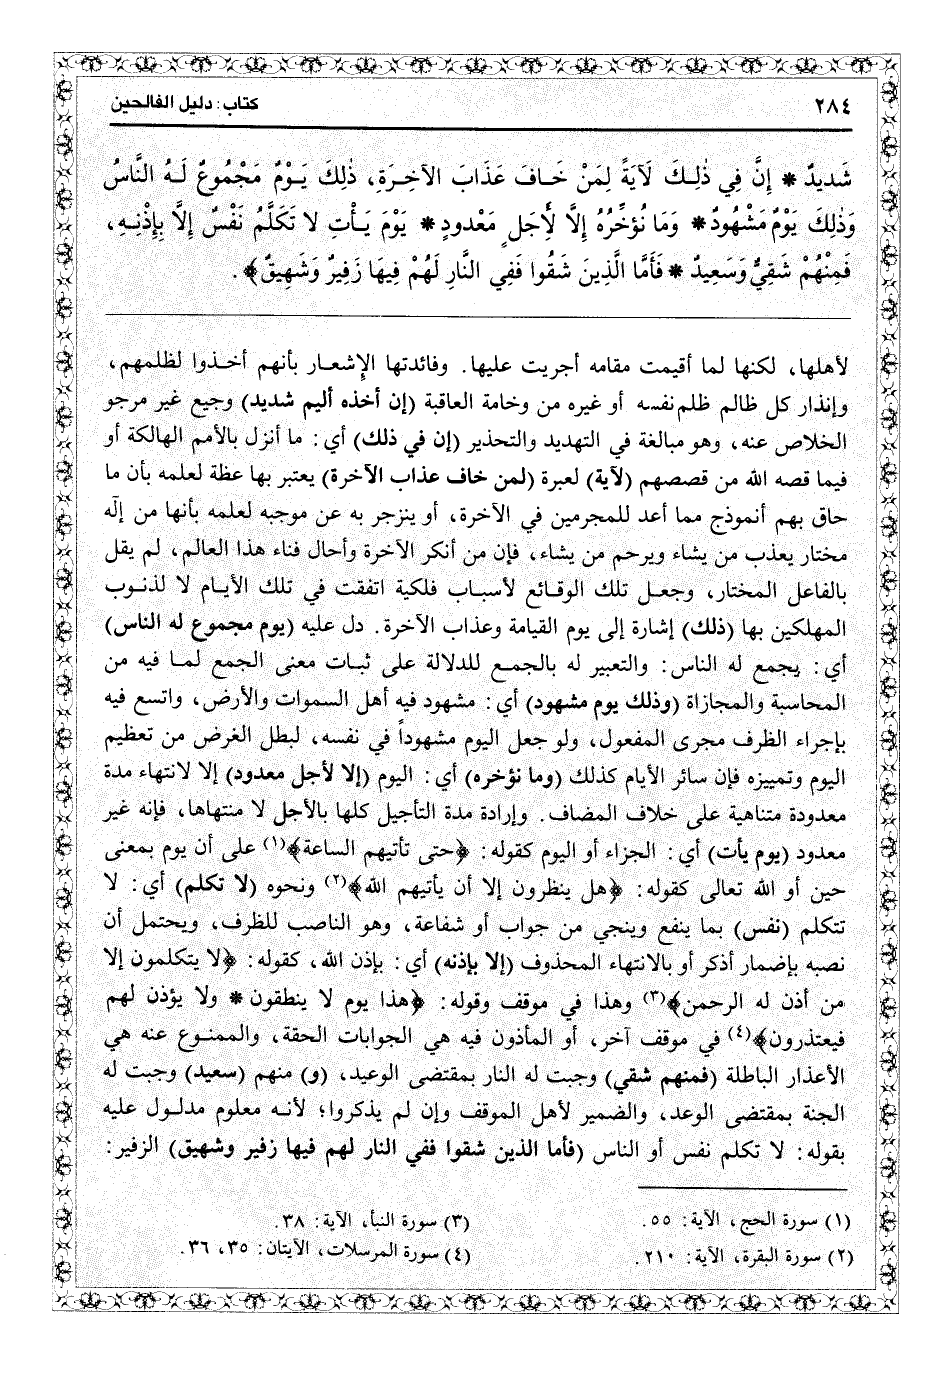 ٢٨٤
كتاب: دليل الفالحين
شَدِيدٌ * إِنَّ فِي ذٰلِكَ لَآيَةً لِمَنْ خَافَ عَذَابَ الآخِرَةِ، ذٰلِكَ يَوْمٌ مَجْمُوعٌ لَهُ النَّاسُ
وَذٰلِكَ يَوْمٌ مَشْهُودٌ * وَمَا نُؤَخِّرُهُ إِلَّا لِأَجَلٍ مَعْدودٍ * يَوْمَ يَأْتِ لا تَكَلَّمُ نَفْسٌ إِلَّا بِإِذْنِهِ،
فَمِنْهُمْ شَقِيٌّ وَسَعِيدٌ * فَأَمَّا الَّذِينَ شَقُوا فَفِي النَّارِ لَهُمْ فِيهَا زَفِيرٌ وَشَهِيقٌ﴾.
لأهلها، لكنها لما أقيمت مقامه أجريت عليها. وفائدتها الإشعار بأنهم أخذوا لظلمهم،
وإنذار كل ظالم ظلم نفسه أو غيره من وخامة العاقبة (إن أخذه أليم شديد) وجيع غير مرجو
الخلاص عنه، وهو مبالغة في التهديد والتحذير (إن في ذلك) أي: ما أنزل بالأمم الهالكة أو
فيما قصه الله من قصصهم (لآية) لعبرة (لمن خاف عذاب الآخرة) يعتبر بها عظة لعلمه بأن ما
حاق بهم أنموذج مما أعد للمجرمين في الآخرة، أو ينزجر به عن موجبه لعلمه بأنها من إلٰه
مختار يعذب من يشاء ويرحم من يشاء، فإن من أنكر الآخرة وأحال فناء هذا العالم، لم يقل
بالفاعل المختار، وجعل تلك الوقائع لأسباب فلكية اتفقت في تلك الأيام لا لذنوب
المهلكين بها (ذلك) إشارة إلى يوم القيامة وعذاب الآخرة. دل عليه (يوم مجموع له الناس)
أي: يجمع له الناس: والتعبير له بالجمع للدلالة على ثبات معنى الجمع لما فيه من
المحاسبة والمجازاة (وذلك يوم مشهود) أي: مشهود فيه أهل السموات والأرض، واتسع فيه
بإجراء الظرف مجرى المفعول، ولو جعل اليوم مشهوداً في نفسه، لبطل الغرض من تعظيم
اليوم وتمييزه فإن سائر الأيام كذلك (وما نؤخره) أي: اليوم (إلا لأجل معدود) إلا لانتهاء مدة
معدودة متناهية على خلاف المضاف. وإرادة مدة التأجيل كلها بالأجل لا منتهاها، فإنه غير
معدود (يوم يأت) أي: الجزاء أو اليوم كقوله: ﴿حتى تأتيهم الساعة﴾(١) على أن يوم بمعنى
حين أو الله تعالى كقوله: ﴿هل ينظرون إلا أن يأتيهم الله﴾(٢) ونحوه (لا تكلم) أي: لا
تتكلم (نفس) بما ينفع وينجي من جواب أو شفاعة، وهو الناصب للظرف، ويحتمل أن
نصبه بإضمار أذكر أو بالانتهاء المحذوف (إلا بإذنه) أي: بإذن الله، كقوله: ﴿لا يتكلمون إلا
من أذن له الرحمن﴾(٣) وهذا في موقف وقوله: ﴿هذا يوم لا ينطقون * ولا يؤذن لهم
فيعتذرون﴾(٤) في موقف آخر، أو المأذون فيه هي الجوابات الحقة، والممنوع عنه هي
الأعذار الباطلة (فمنهم شقي) وجبت له النار بمقتضى الوعيد، (و) منهم (سعيد) وجبت له
الجنة بمقتضى الوعد، والضمير لأهل الموقف وإن لم يذكروا؛ لأنه معلوم مدلول عليه
بقوله: لا تكلم نفس أو الناس (فأما الذين شقوا ففي النار لهم فيها زفير وشهيق) الزفير:
(١) سورة الحج، الآية: ٥٥.
(٢) سورة البقرة، الآية: ٢١٠.
(٣) سورة النبأ، الآية: ٣٨.
(٤) سورة المرسلات، الآيتان: ٣٥، ٣٦.